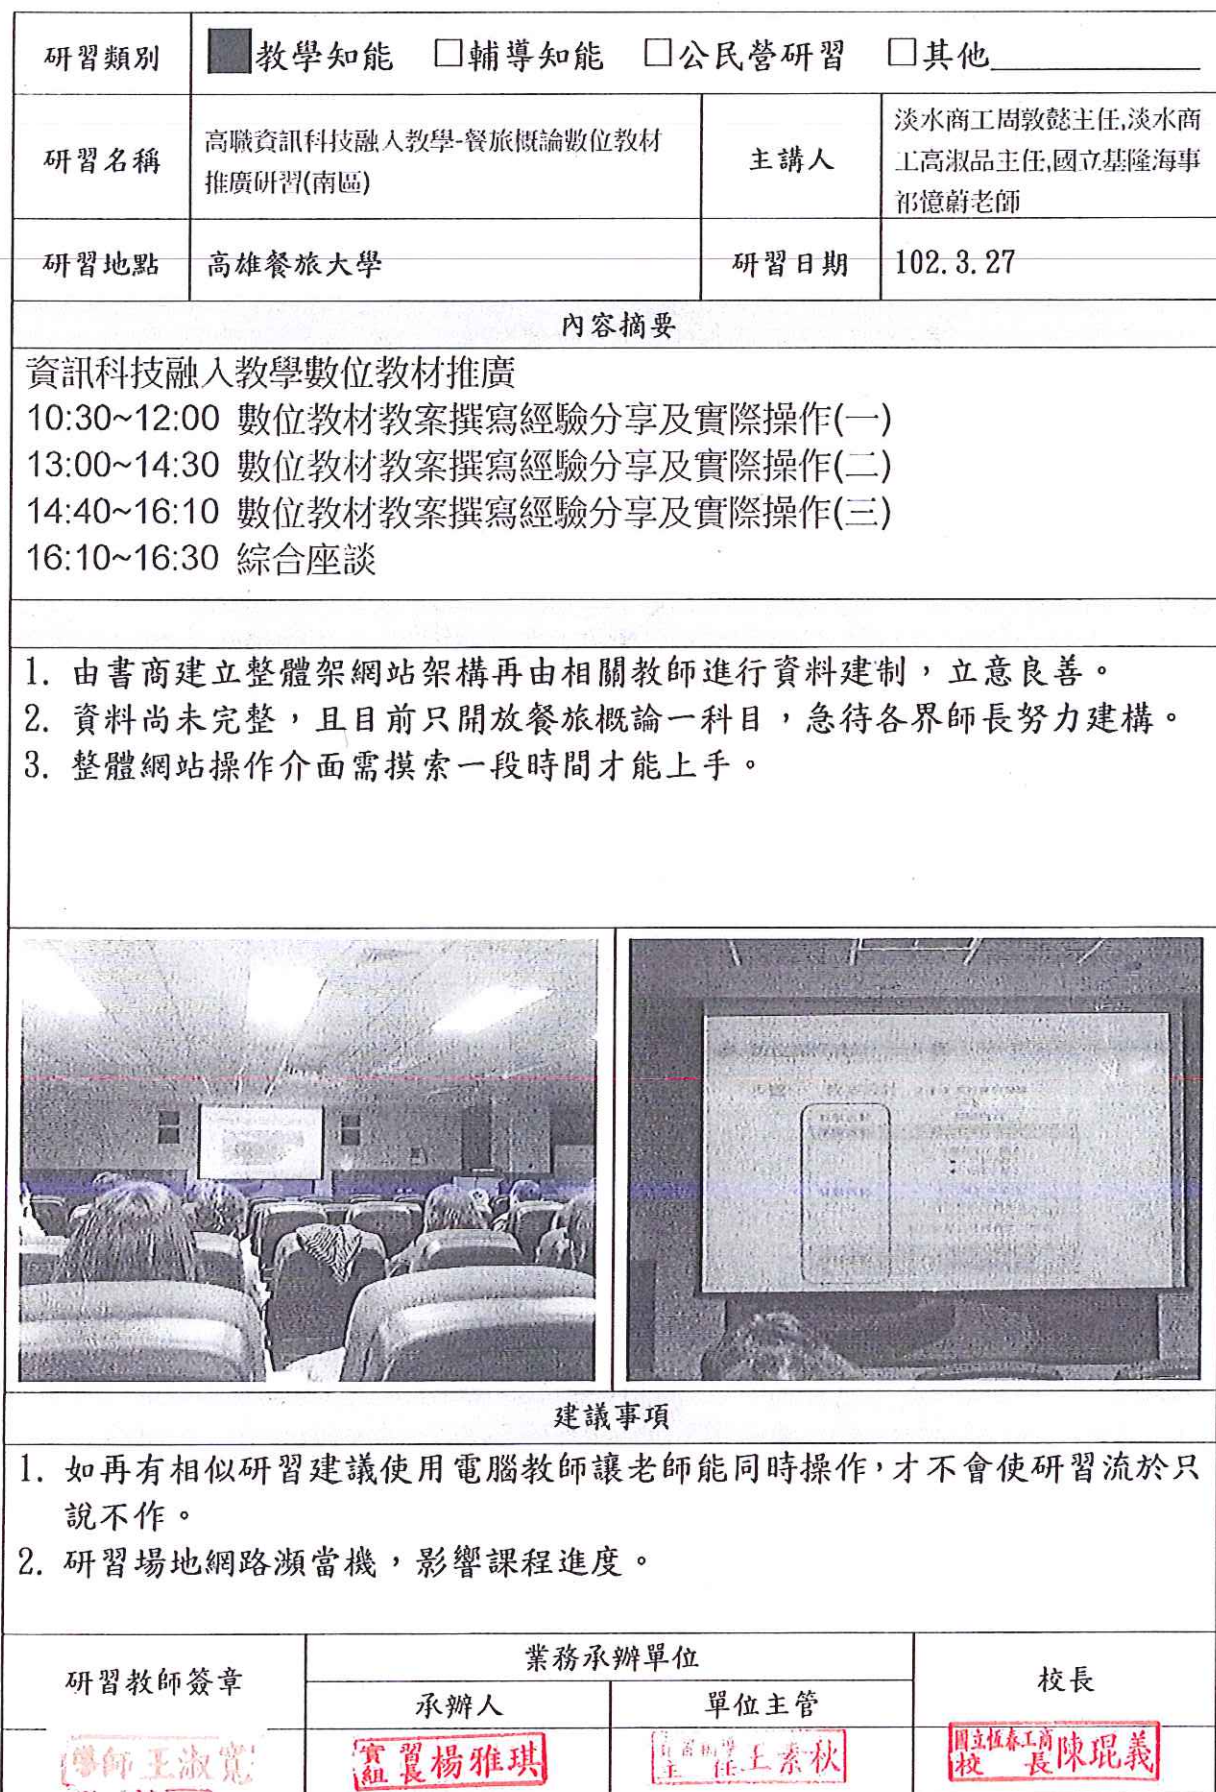 研習類別
■教學知能 □輔導知能 □公民營研習 □其他
研習名稱
高職資訊科技融入教學-餐旅概論數位教材
推廣研習(南區)
主講人
淡水商工周敦懿主任,淡水商
工高淑品主任,國立基隆海事
祁憶蔚老師
研習地點
高雄餐旅大學
研習日期
102.3.27
內容摘要
資訊科技融入教學數位教材推廣
10:30~12:00 數位教材教案撰寫經驗分享及實際操作(一)
13:00~14:30 數位教材教案撰寫經驗分享及實際操作(二)
14:40~16:10 數位教材教案撰寫經驗分享及實際操作(三)
16:10~16:30 綜合座談
1. 由書商建立整體架網站架構再由相關教師進行資料建制，立意良善。
2. 資料尚未完整，且目前只開放餐旅概論一科目，急待各界師長努力建構。
3. 整體網站操作介面需摸索一段時間才能上手。
建議事項
1. 如再有相似研習建議使用電腦教師讓老師能同時操作，才不會使研習流於只
說不作。
2. 研習場地網路瀕當機，影響課程進度。
研習教師簽章
業務承辦單位
校長
承辦人
單位主管
王淑寬
實習組長楊雅琪
主任王素秋
國立恆春工商校長陳琨義